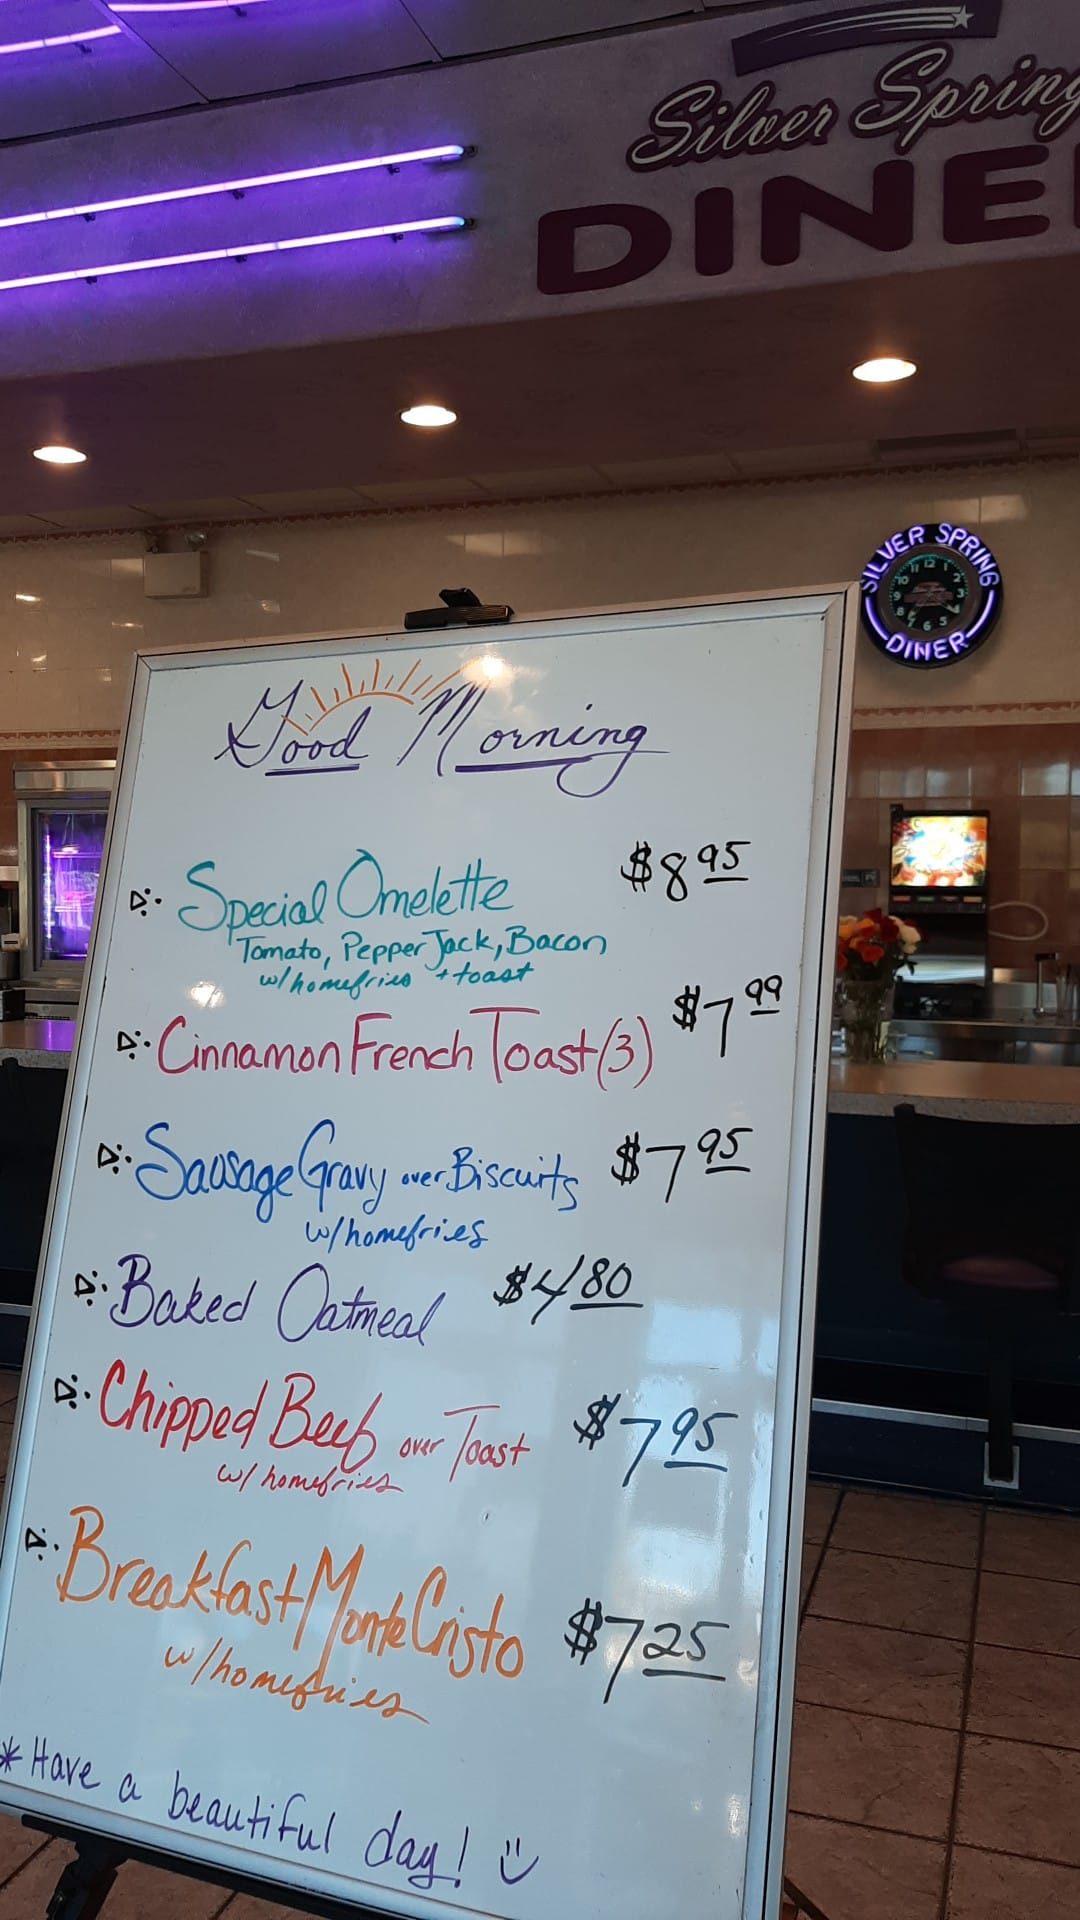 Silver Spring
DINE
SILVER SPRING
DINER
Good Morning
Special Omelette $8 95
Tomato, Pepper Jack, Bacon
w/homefries + toast
Cinnamon French Toast (3) $7 99
Sausage Gravy over Biscuits $7 95
w/homefries
Baked Oatmeal $4 80
Chipped Beef over Toast $7 95
w/ homefries
Breakfast Monte Cristo $7 25
w/homefries
* Have a beautiful day!